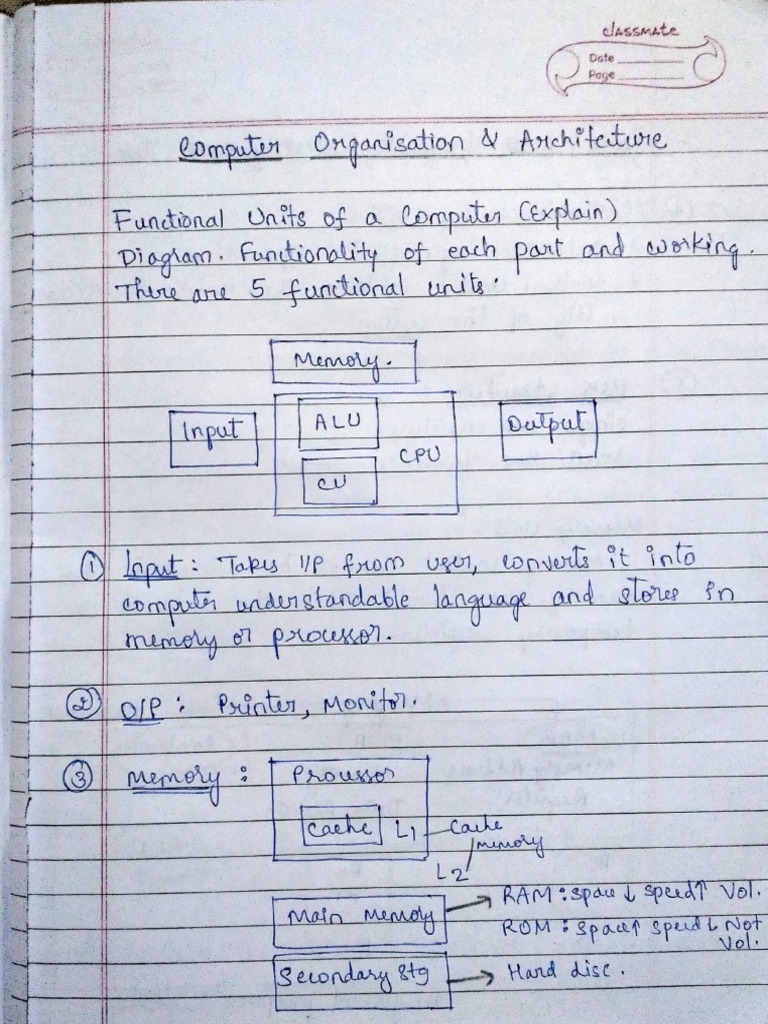 classmate
Date
Page
Computer Organisation & Architecture
Functional Units of a Computer (Explain)
Diagram. Functionality of each part and working.
There are 5 functional units
Memory.
Input
ALU
CPU
CU
Output
① Input : Takes I/P from user, converts it into
computer understandable language and stores in
memory or processor.
② O/P : Printer, Monitor.
③ memory :
Processor
Cache
L1
Cache
memory
L2
Main Memory
RAM : space ↓ speed ↑ Vol.
ROM : space ↑ speed ↓ Not
Vol.
Secondary Stg
Hard disc.